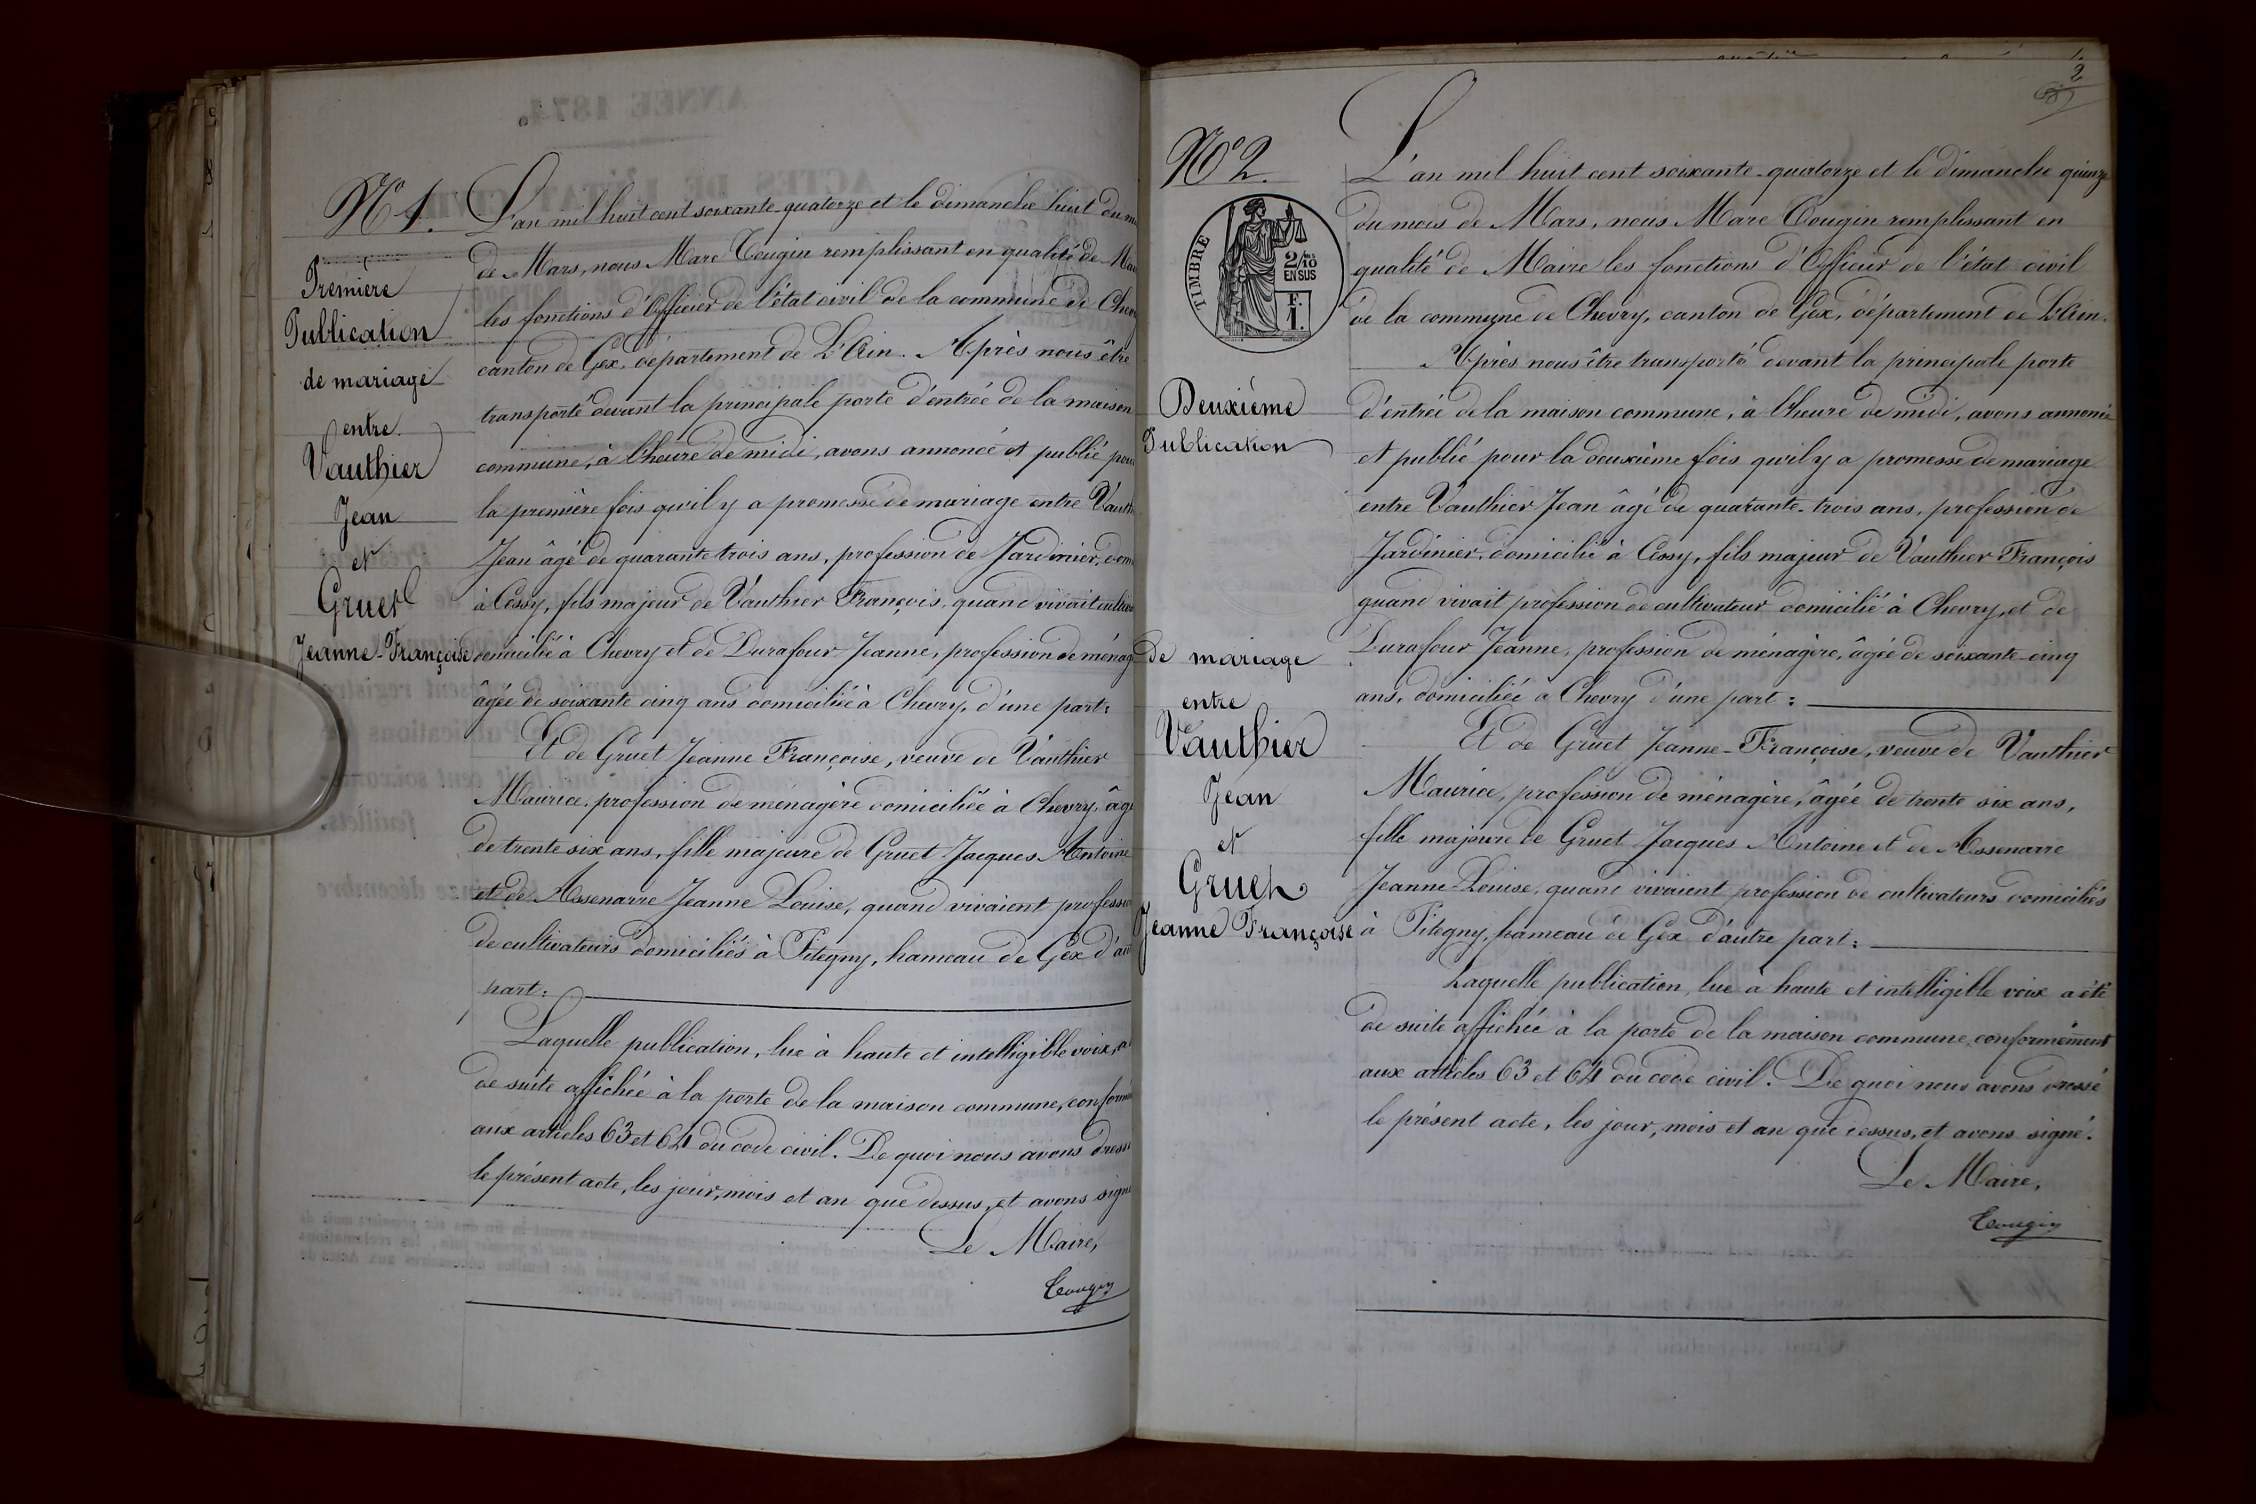 N° 1.
Première
Publication
de mariage
entre
Vauthier
Jean
et
Gruet
Jeanne-Françoise
L'an mil huit cent soixante-quatorze et le dimanche huit du
de Mars, nous Marc Tougin remplissant en qualité de
les fonctions d'Officier de l'état civil de la commune de
canton de Gex, département de L'Ain. Après nous être
transporté devant la principale porte d'entrée de la maison
commune, à l'heure de midi, avons annoncé et publié
la première fois qu'il y a promesse de mariage entre
Jean âgé de quarante trois ans, profession de Jardinier,
à Cessy, fils majeur de Vauthier François, quand vivait
domicilié à Chevry et de Durafour Jeanne, profession de
âgée de soixante cinq ans domiciliée à Chevry, d'une part:
Et de Gruet Jeanne Françoise, veuve de Vauthier
Maurice, profession de ménagère domiciliée à Chevry,
de trente six ans, fille majeure de Gruet Jacques Antoine
et de Assenarre Jeanne Louise, quand vivaient
de cultivateurs domiciliés à Pitegny, hameau de Gex
part:
Laquelle publication, lue à haute et intelligible voix, a
de suite affichée à la porte de la maison commune,
aux articles 63 et 64 du code civil. De quoi nous avons
le présent acte, les jour, mois et an que dessus, et avons
Le Maire,
Tougin
2
N° 2.
TIMBRE
2/10
EN SUS
F.
1.
Deuxième
Publication
de mariage
entre
Vauthier
Jean
et
Gruet
Jeanne Françoise
L'an mil huit cent soixante-quatorze et le dimanche quinze
du mois de Mars, nous Marc Tougin remplissant en
qualité de Maire les fonctions d'Officier de l'état civil
de la commune de Chevry, canton de Gex, département de L'Ain.
Après nous être transporté devant la principale porte
d'entrée de la maison commune, à l'heure de midi, avons annoncé
et publié pour la deuxième fois qu'il y a promesse de mariage
entre Vauthier Jean âgé de quarante-trois ans, profession de
Jardinier, domicilié à Cessy, fils majeur de Vauthier François
quand vivait profession de cultivateur domicilié à Chevry, et de
Durafour Jeanne, profession de ménagère, âgée de soixante-cinq
ans, domiciliée à Chevry d'une part:
Et de Gruet Jeanne-Françoise, veuve de Vauthier
Maurice, profession de ménagère, âgée de trente six ans,
fille majeure de Gruet Jacques Antoine et de Assenarre
Jeanne-Louise, quand vivaient profession de cultivateurs domiciliés
à Pitegny, hameau de Gex d'autre part:
Laquelle publication, lue à haute et intelligible voix a été
de suite affichée à la porte de la maison commune, conformément
aux articles 63 et 64 du code civil. De quoi nous avons dressé
le présent acte, les jour, mois et an que dessus, et avons signé.
Le Maire,
Tougin